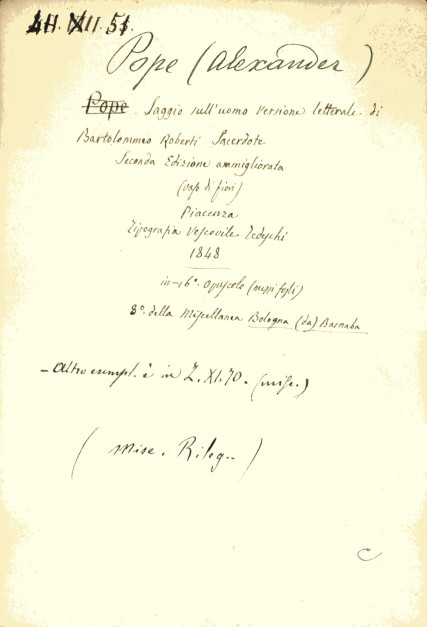 Pope (Alexander)
Pope Saggio sull'uomo versione letterale di
Bartolommeo Roberti Sacerdote
Seconda Edizione ammigliorata
(vaso di fiori)
Piacenza
Tipografia Vescovile Tedeschi
1848
in-16°. Opuscolo (mezzi fogli)
8°. della Miscellanea Bologna (da) Barnaba
- Altro esempl. è in Z. XI. 70. (misc.)
(Misc. Rileg.)